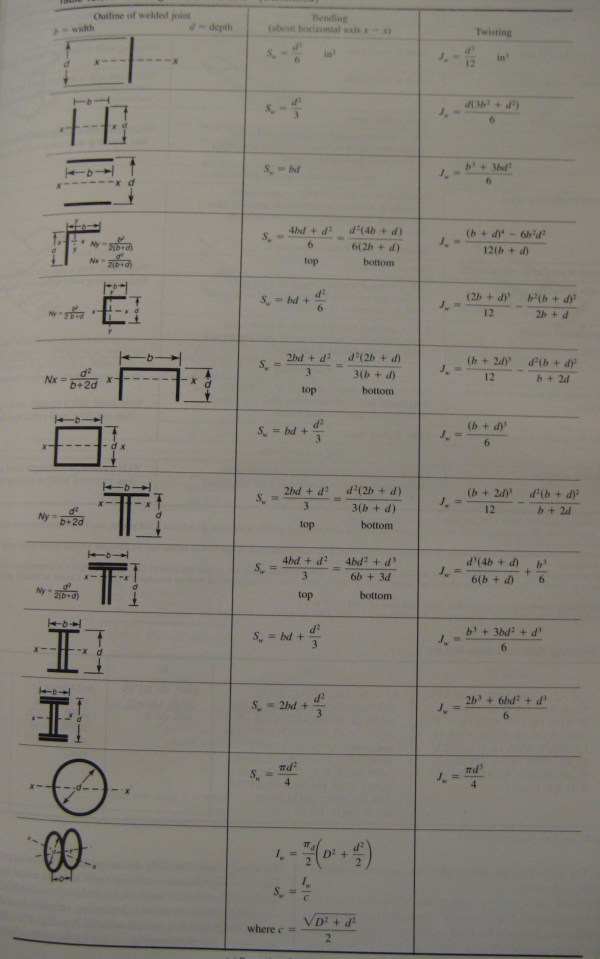 Outline of welded joint
b = width d = depth
Bending
(about horizontal axis x – x)
Twisting
d x x
S_w = d²/6 in²
J_w = d³/12 in³
b x x d
S_w = d²/3
J_w = d(3b² + d²)/6
b x x d
S_w = bd
J_w = b³ + 3bd²/6
b y x x d y
Ny = b²/2(b+d)
Nx = d²/2(b+d)
S_w = 4bd + d²/6 = d²(4b + d)/6(2b + d)
top bottom
J_w = (b + d)⁴ – 6b²d²/12(b + d)
Ny = b²/2b+d
b y x x d y
S_w = bd + d²/6
J_w = (2b + d)³/12 – b²(b + d)²/2b + d
Nx = d²/b+2d
b x x d
S_w = 2bd + d²/3 = d²(2b + d)/3(b + d)
top bottom
J_w = (b + 2d)³/12 – d²(b + d)²/b + 2d
b x x d
S_w = bd + d²/3
J_w = (b + d)³/6
Ny = d²/b+2d
b x x d
S_w = 2bd + d²/3 = d²(2b + d)/3(b + d)
top bottom
J_w = (b + 2d)³/12 – d²(b + d)²/b + 2d
Ny = d²/2(b+d)
b x x d
S_w = 4bd + d²/3 = 4bd² + d³/6b + 3d
top bottom
J_w = d³(4b + d)/6(b + d) + b³/6
b x x d
S_w = bd + d²/3
J_w = b³ + 3bd² + d³/6
b x x d
S_w = 2bd + d²/3
J_w = 2b³ + 6bd² + d³/6
x d x
S_w = πd²/4
J_w = πd³/4
x x D
I_w = πd/2 (D² + d²/2)
S_w = I_w/c
where c = √D² + d²/2